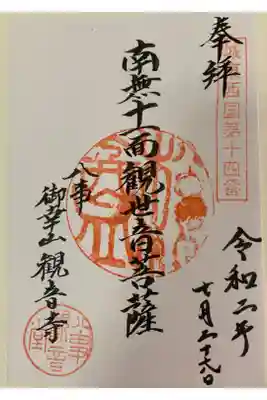 奉拝
西国第十四番
令和二年
七月二十八日
南無十一面観世音菩薩
八事
御幸山 観音寺